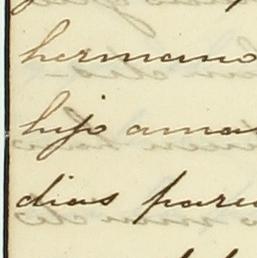 hermano
hijo ama
dias pare